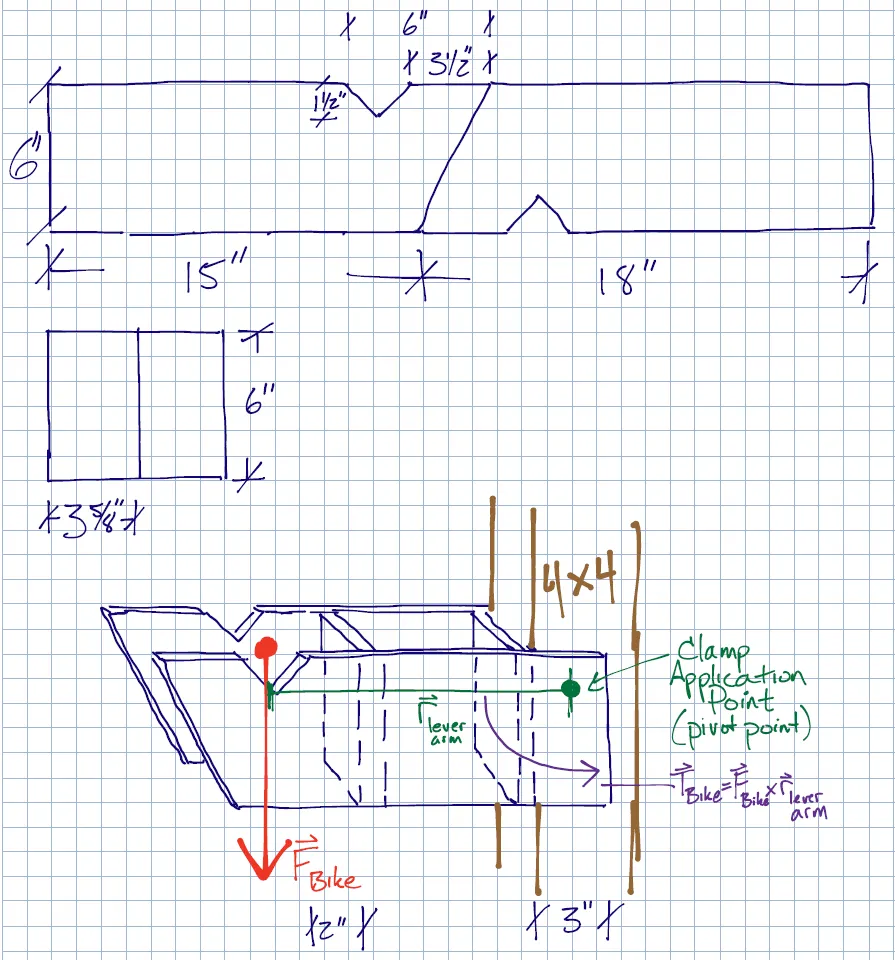 6"
3½"
1½"
6"
15"
18"
6"
3⅝"
4x4
Clamp
Application
Point
(pivot point)
r lever
arm
T Bike = F Bike x r lever
arm
F Bike
2"
3"